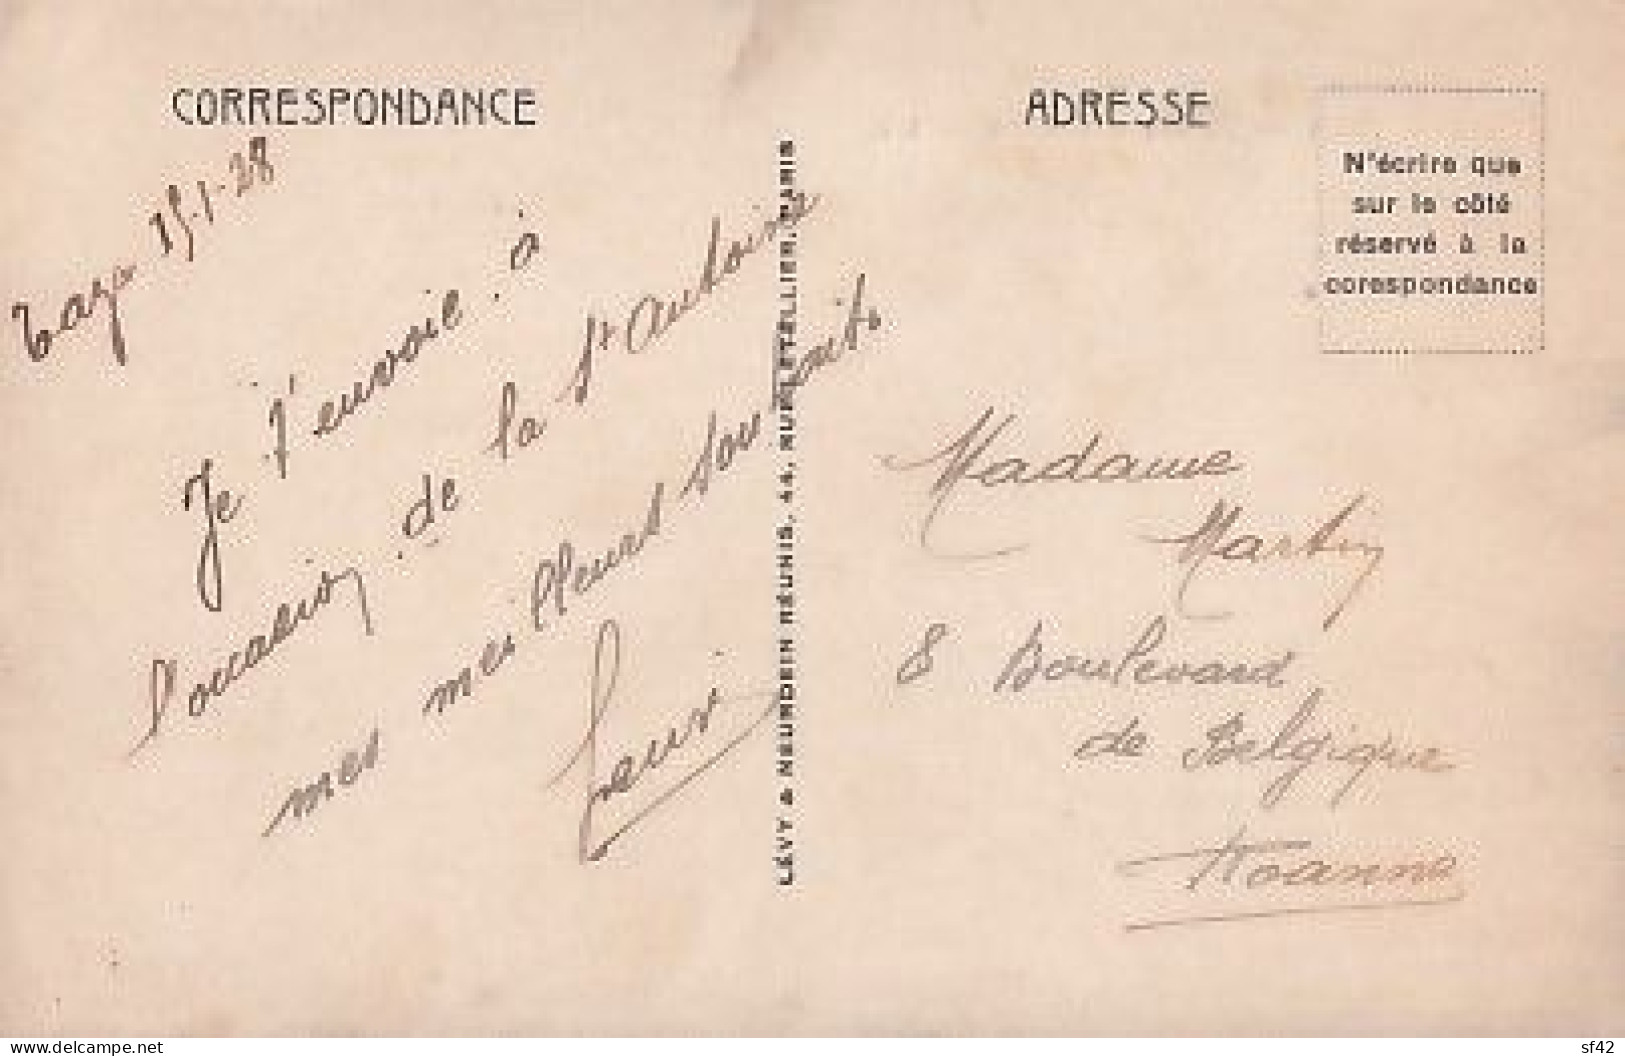 CORRESPONDANCE
Taza 15-1-28
Je t'envoie à
l'occasion de la St Antoine
mes meilleurs souhaits
LÉVY & NEURDEIN RÉUNIS, 44, RUE LETELLIER, PARIS
ADRESSE
N'écrire que
sur le côté
réservé à la
corespondance
Madame
Martin
8 Boulevard
de Belgique
Roanne
delcampe.net
sf42